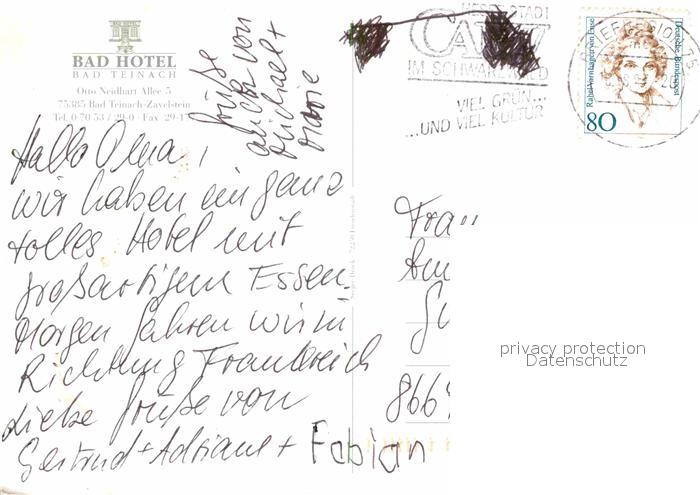 BAD HOTEL
BAD TEINACH
Otto Neidhart Allee 5
75385 Bad Teinach-Zavelstein
Tel. 0 70 53 / 29-0 · Fax 29-17
Grüße
auch von
Michael +
Hallo Oma,
wir haben ein ganz
tolles Hotel mit
großartigem Essen.
Morgen fahren wir in
Richtung Frankreich
Liebe Grüße von
Gertrud + Adriane + Fabian
STADT
CALW
IM SCHWARZWALD
VIEL GRÜN...
...UND VIEL KULTUR
Rahel Varnhagen von Ense
Deutsche Bundespost
80
Frau
866
privacy protection
Datenschutz